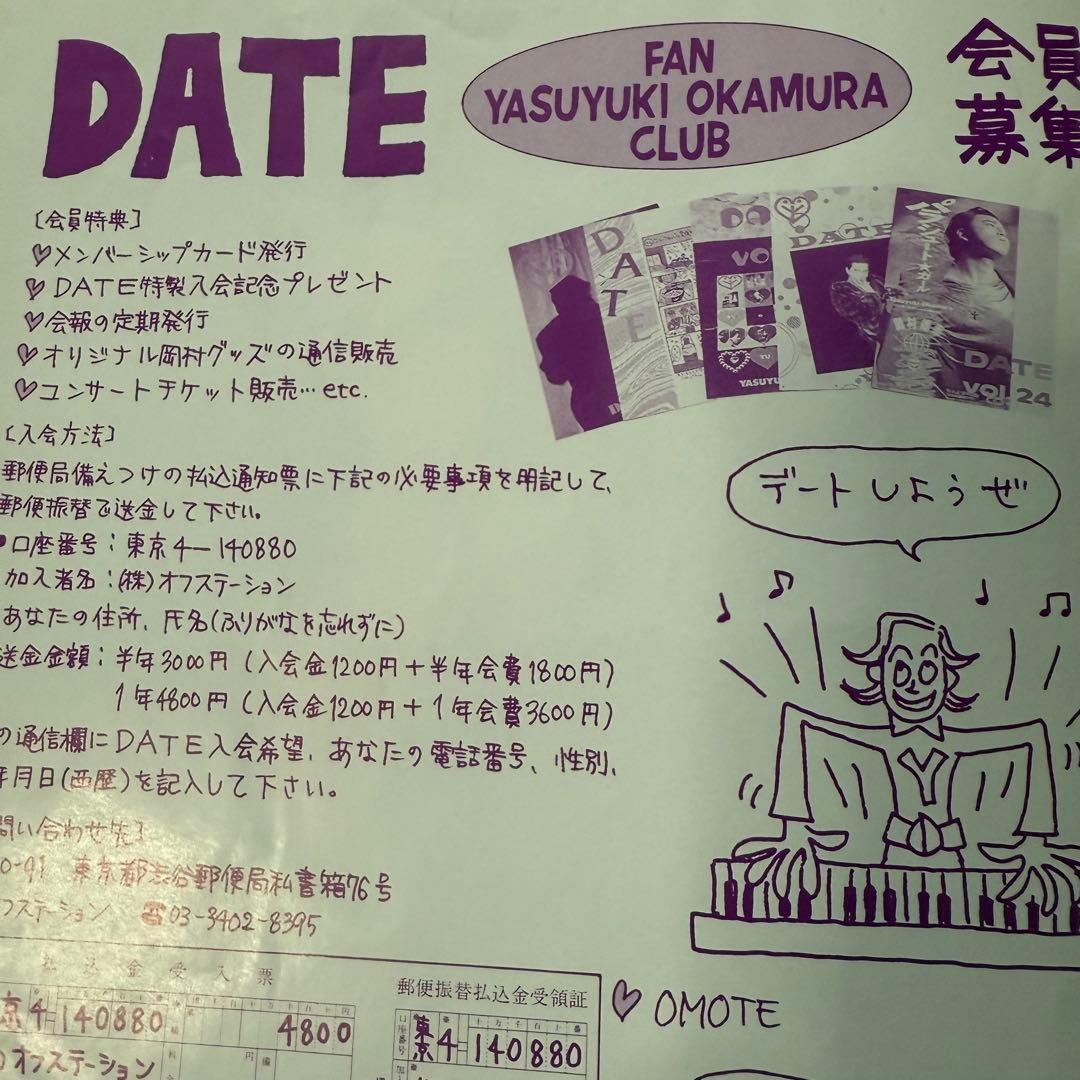 DATE
FAN
YASUYUKI OKAMURA
CLUB
会員
募集
〔会員特典〕
♡メンバーシップカード発行
♡DATE特製入会記念プレゼント
♡会報の定期発行
♡オリジナル岡村グッズの通信販売
♡コンサートチケット販売…etc.
〔入会方法〕
郵便局備えつけの払込通知票に下記の必要事項を明記して、
郵便振替で送金して下さい。
●口座番号：東京4－140880
加入者名：(株)オフステーション
あなたの住所、氏名(ふりがなを忘れずに)
送金金額：半年3000円（入会金1200円＋半年会費1800円）
1年4800円（入会金1200円＋1年会費3600円）
の通信欄にDATE入会希望、あなたの電話番号、性別、
年月日(西暦)を記入して下さい。
問い合わせ先〕
0-91 東京都渋谷郵便局私書箱76号
フステーション ☎03-3402-8395
DATE
DATE
VOL 24
YASUYU
デートしようぜ
Y
払込金受入票
京4-140880
4800
オフステーション
郵便振替払込金受領証
口座番号
東京4-140880
♡OMOTE